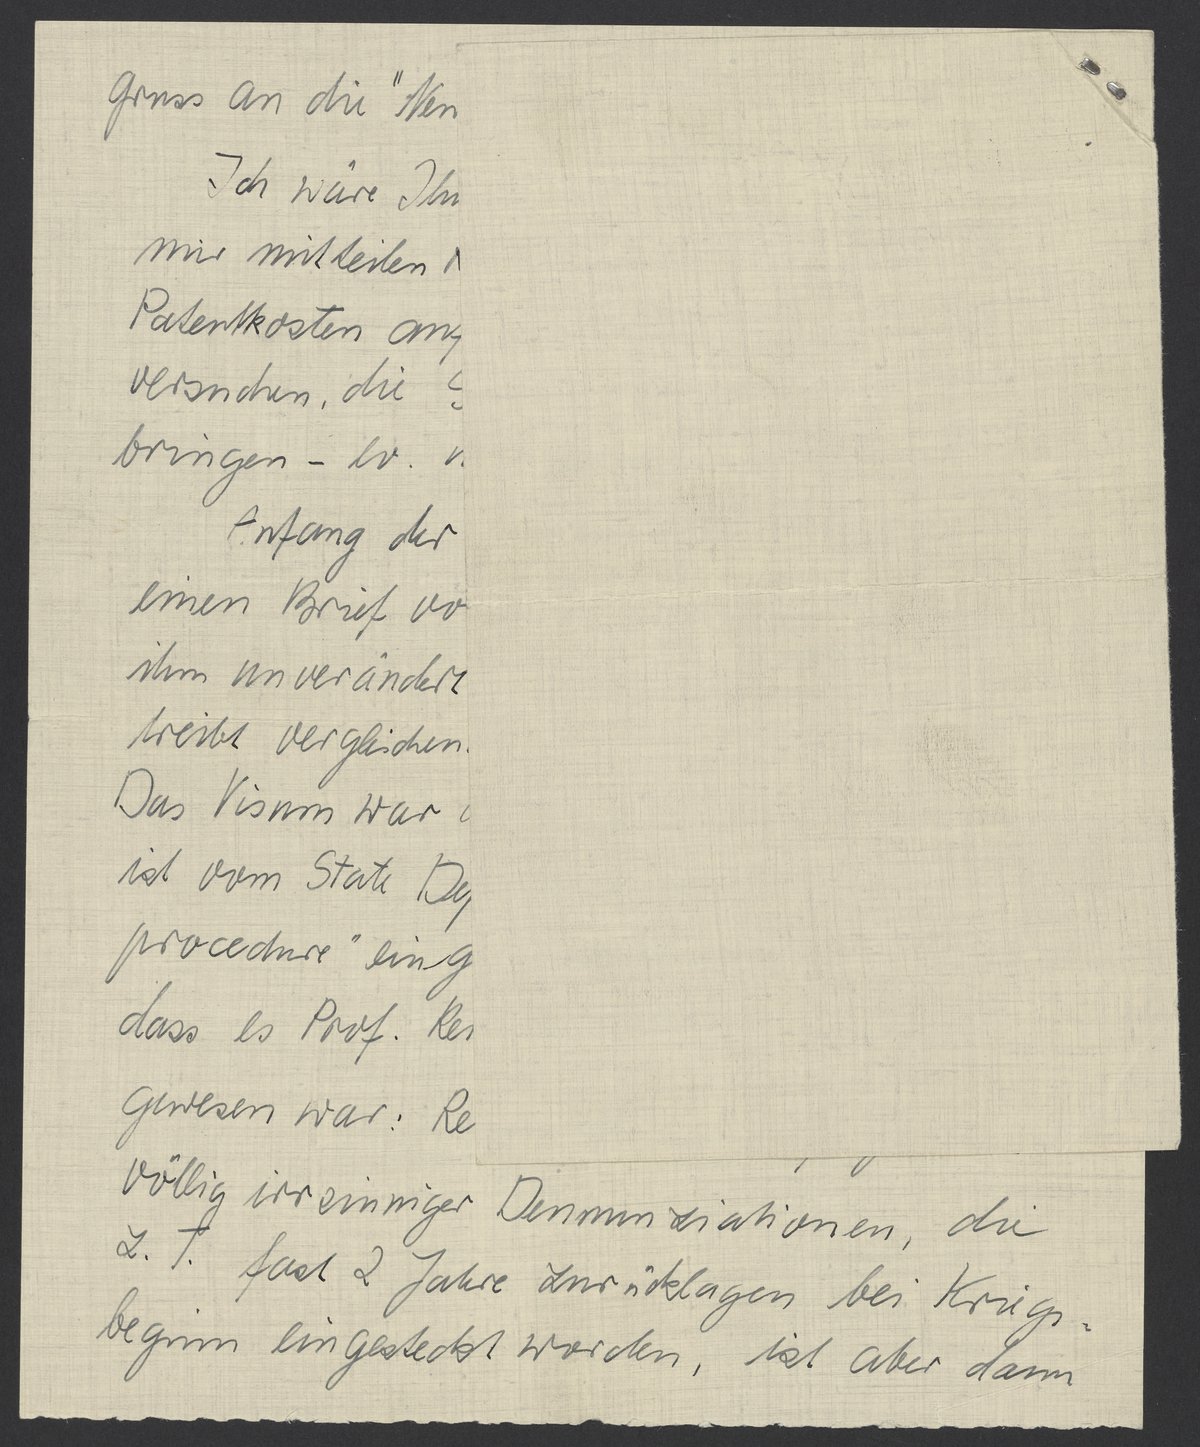 Gruss an die "Neu
Ich wäre Ihn
mir mitteilen
Patentkosten ang
versuchen, die
bringen - ev.
Anfang der
einen Brief vo
ihm unverändert
treibt verglichen.
Das Visum war
ist vom State Dep
procedure" eing
dass es Prof. Rei
gewesen war: Re
völlig irrsinniger Denunziationen, die
z. T. fast 2 Jahre zurücklagen bei Kriegs-
beginn eingesteckt worden, ist aber dann